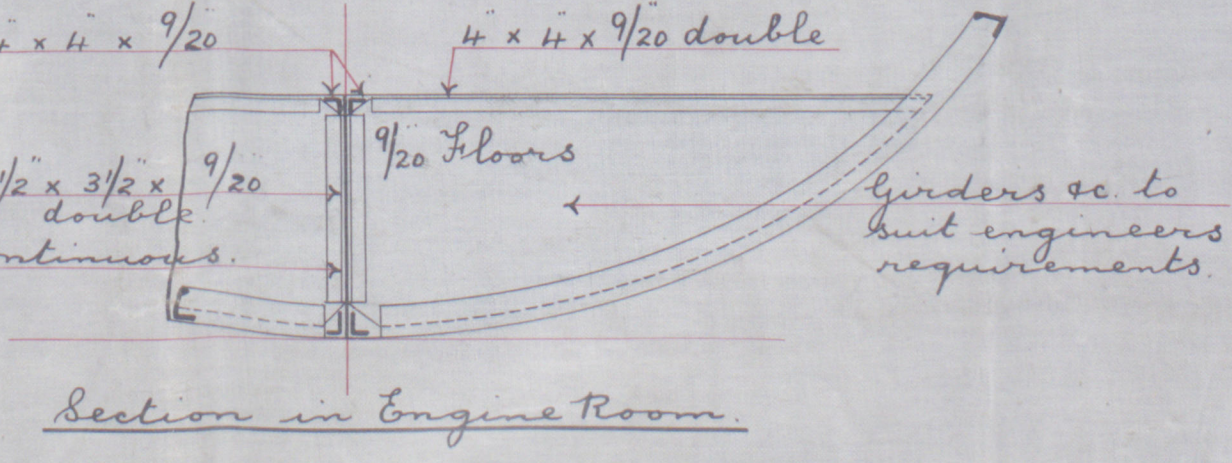 4" x 4" x 9/20
4" x 4" x 9/20 double
9/20 Floors
1/2" x 3 1/2" x 9/20
double.
Girders &c. to
suit engineers
requirements.
Section in Engine Room.